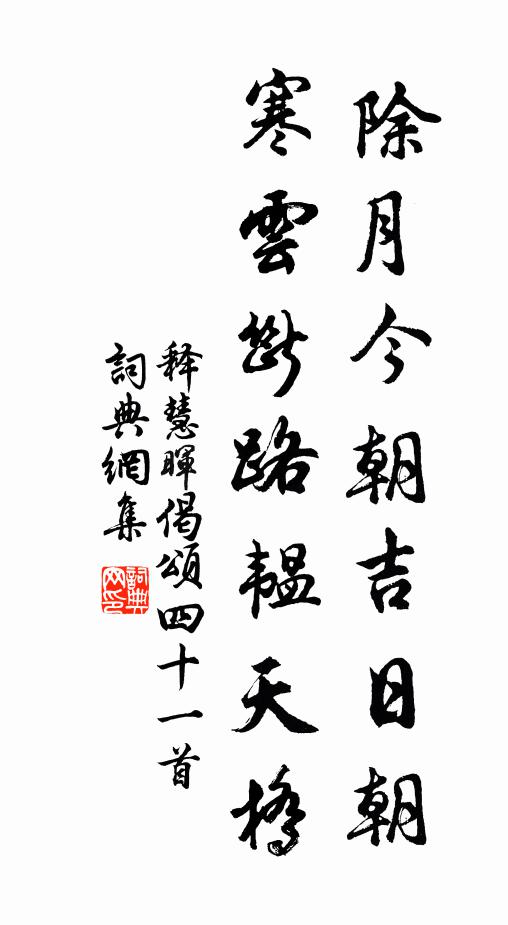 除月今朝吉日朝
寒雲斷路韞天橋
释慧暉偈頌四十一首
詞典網集
詞典網印